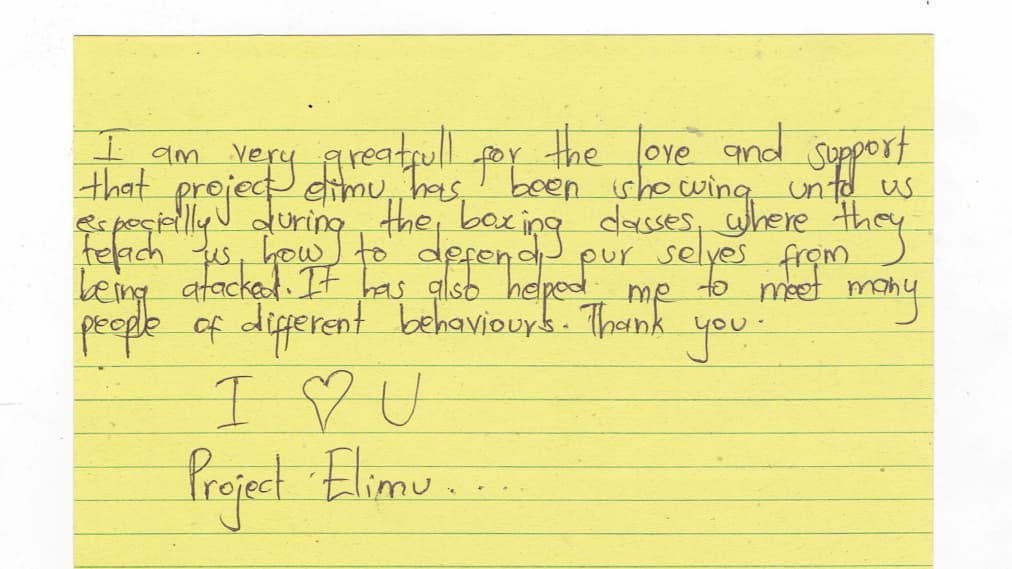 I am very greatfull for the love and support
that project elimu has been showing unto us
especially during the boxing classes, where they
teach us how to defend our selves from
being atacked. It has also helped me to meet many
people of different behaviours. Thank you.
I ♡ U
Project Elimu....